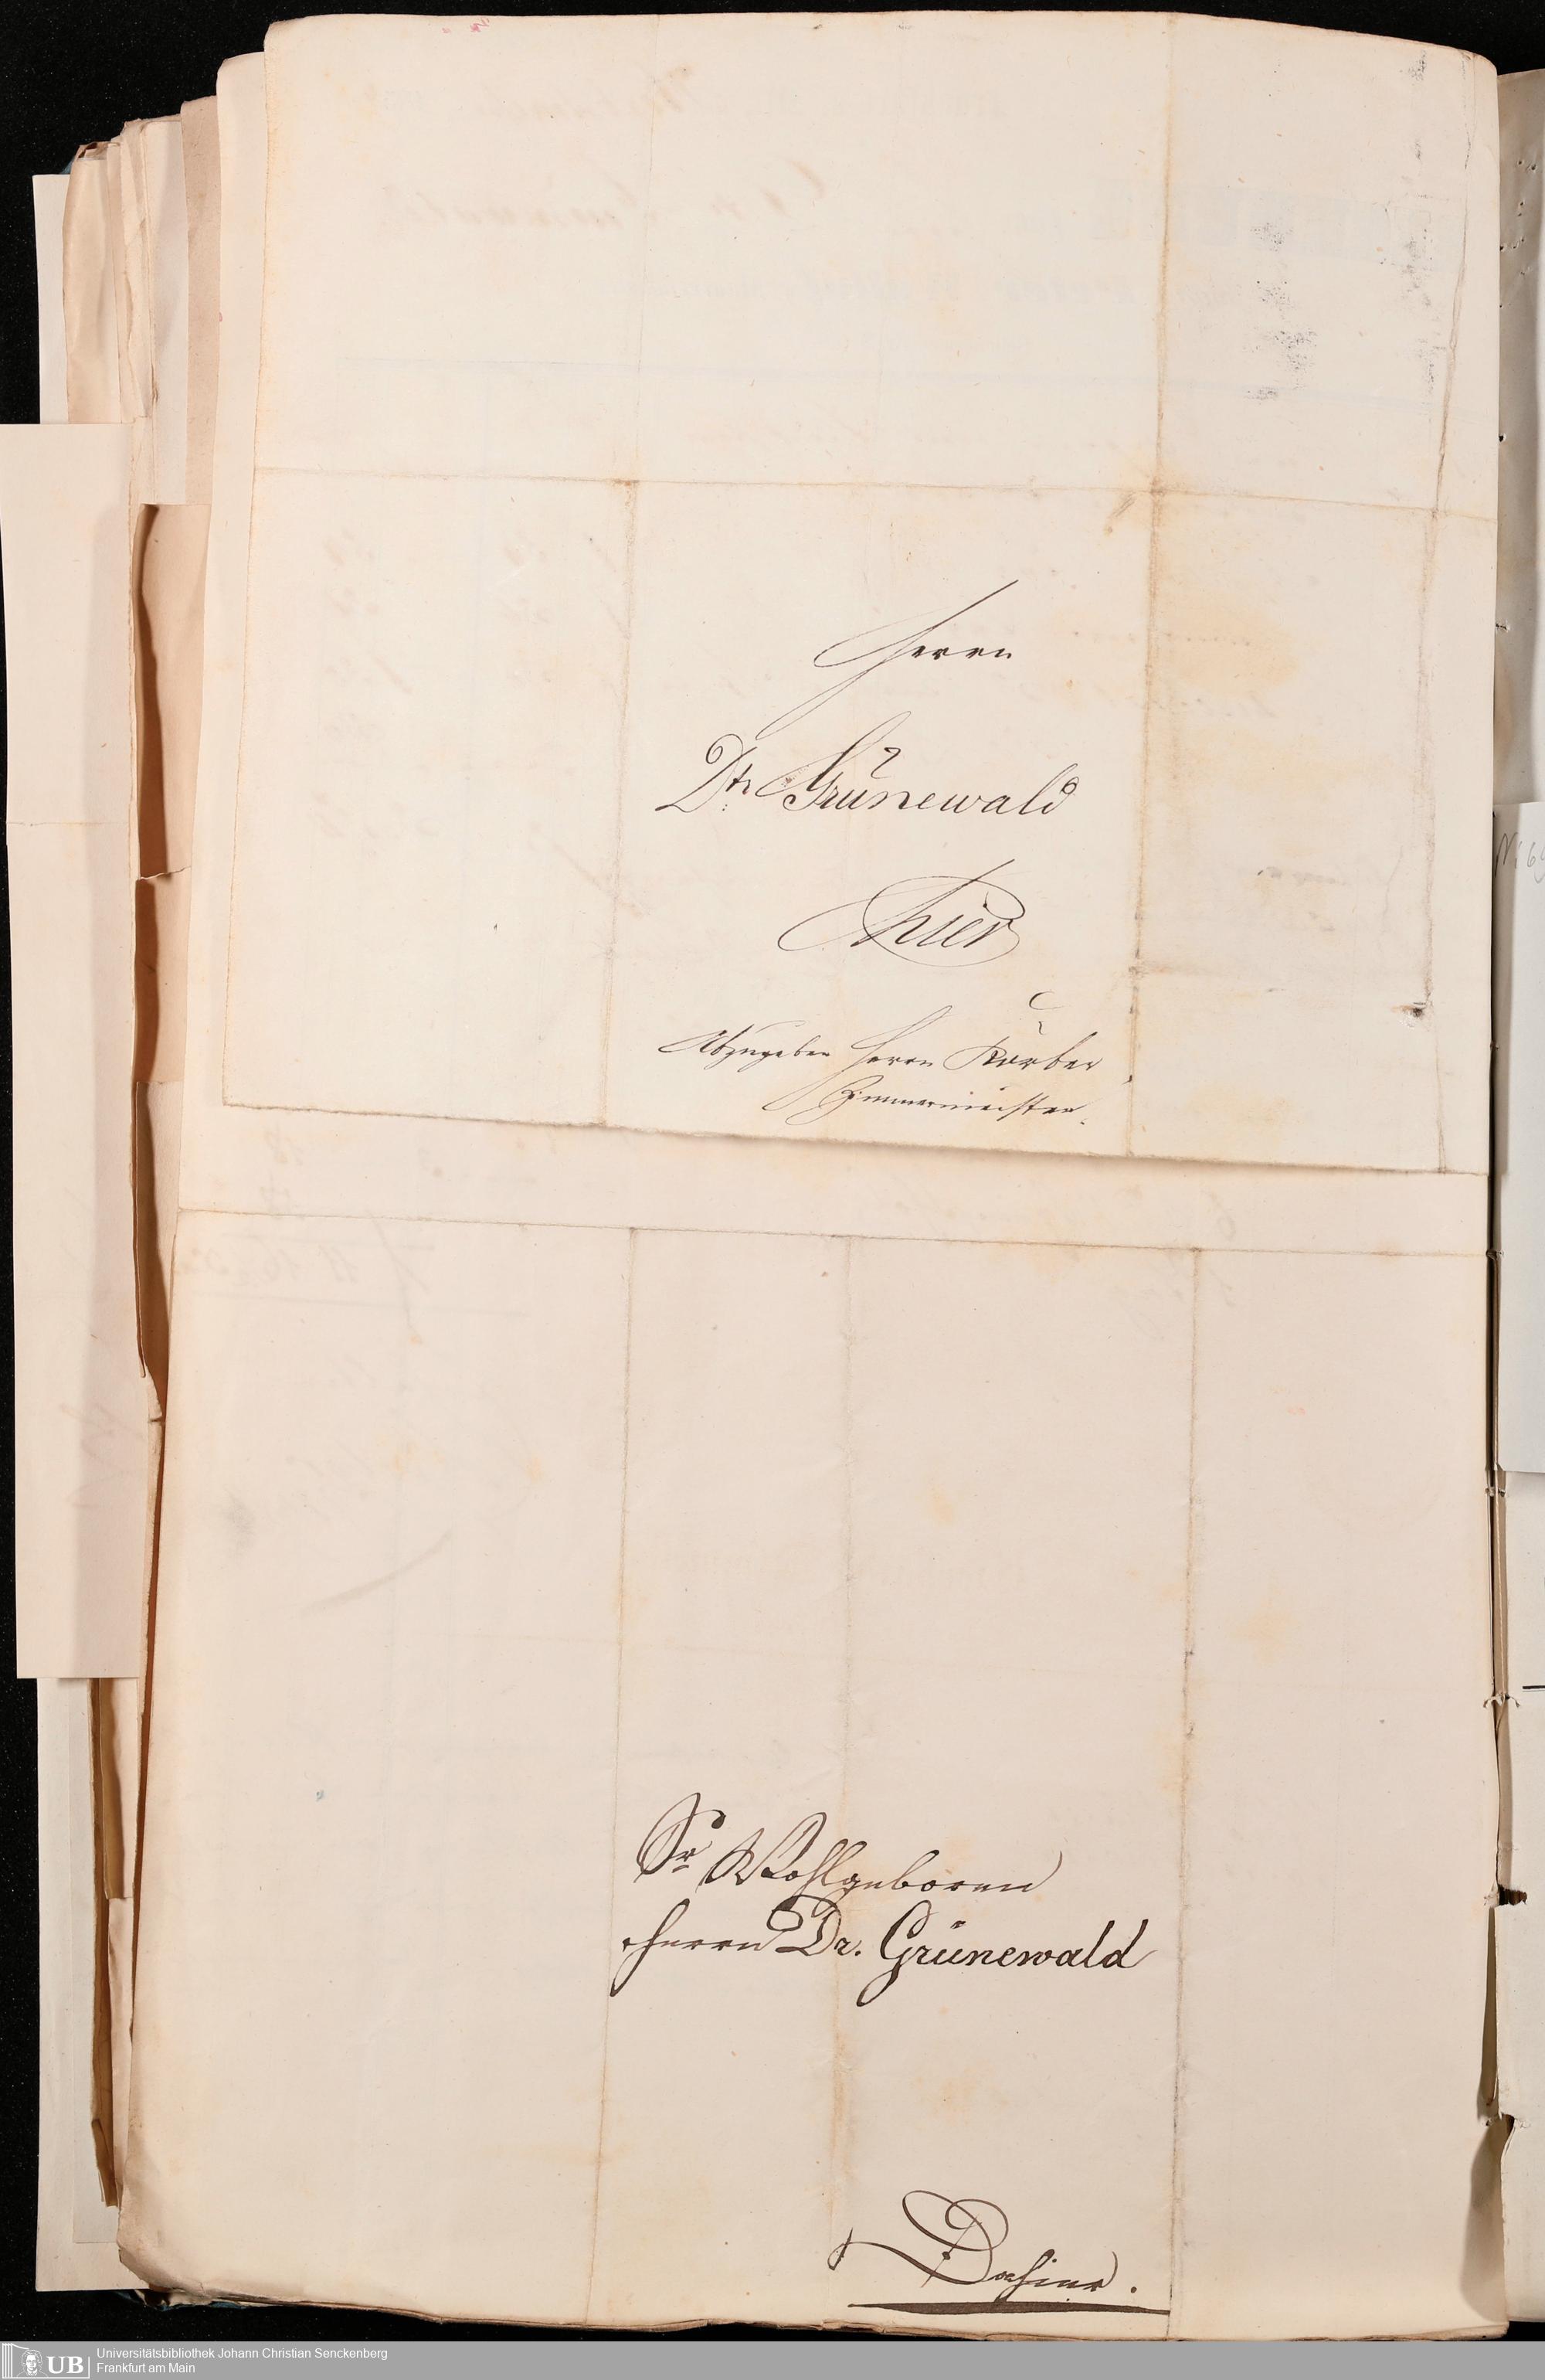 Herrn
Dr. Grünewald
hier
Abzugeben Herrn Körber,
Zimmermeister.
Sr Wohlgeboren
Herrn Dr. Grünewald
Dahier.
UB
Universitätsbibliothek Johann Christian Senckenberg
Frankfurt am Main